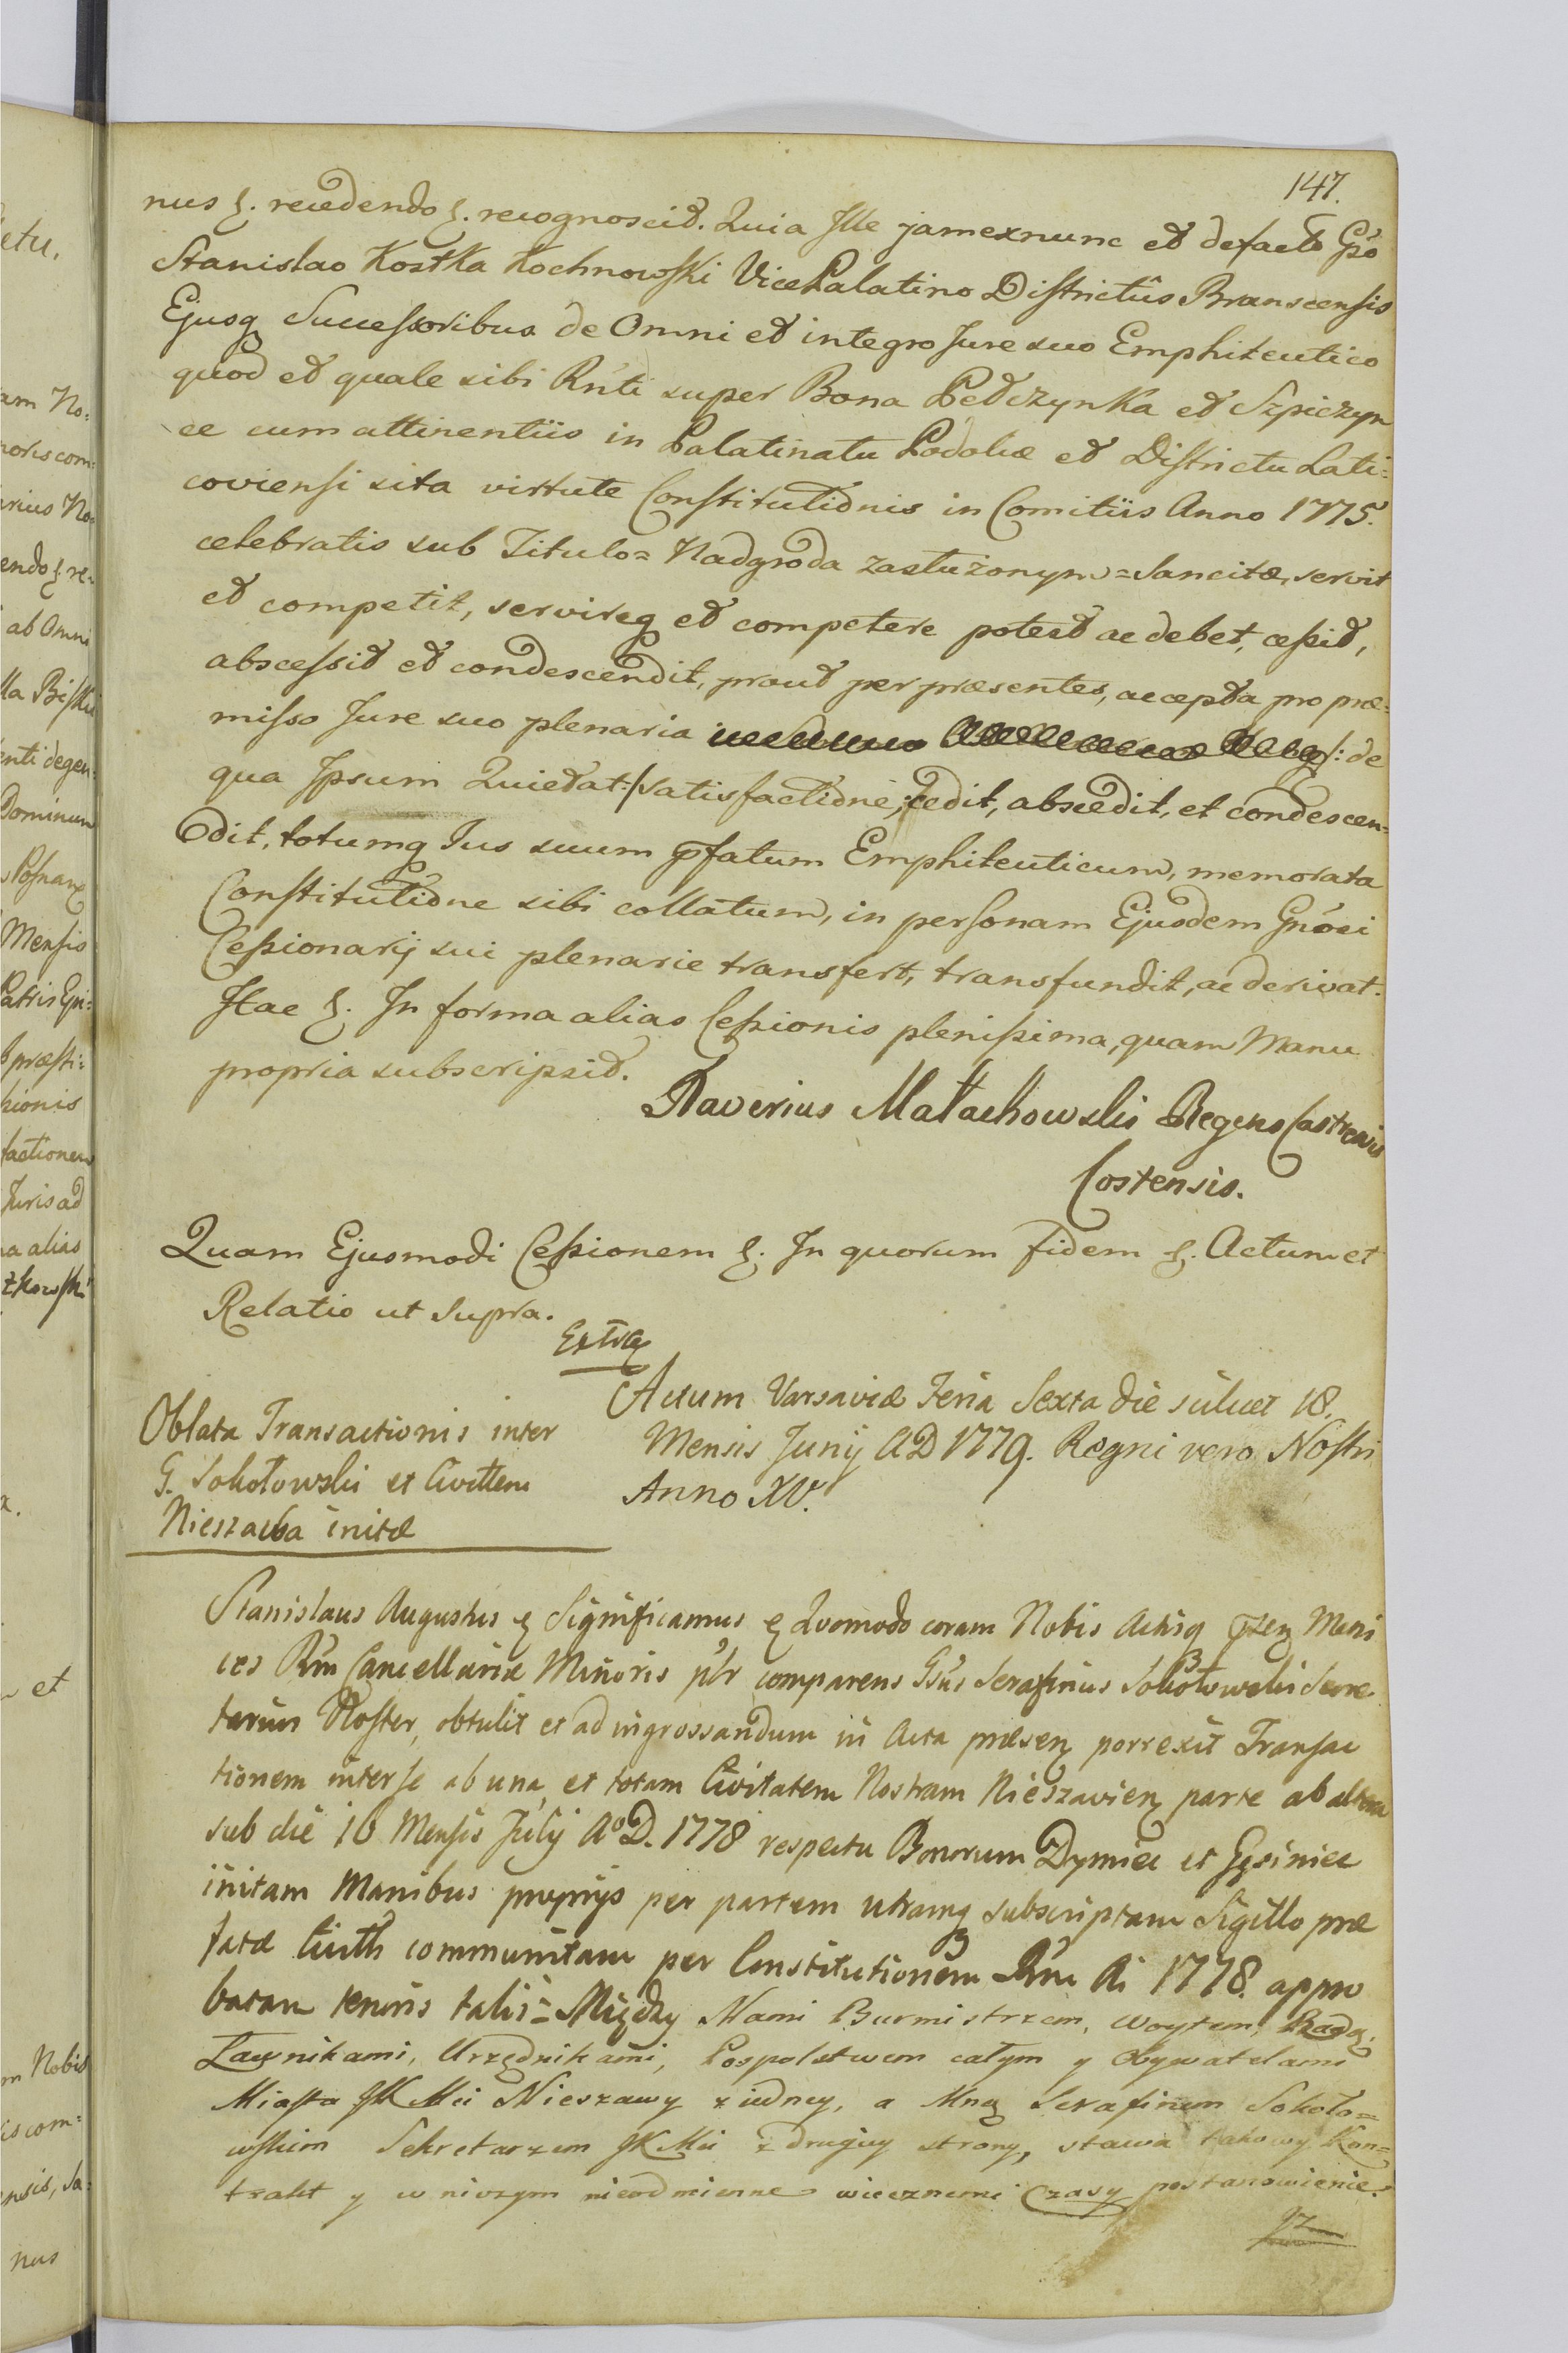 147.
nus &. recedendo &. recognoscit. Quia Ille jamexnunc et defacto Gso
Stanislao Kostka Kochnowski VicePalatino Districtûs Branscensis
Ejusq Successoribus de Omni et integro Jure suo Emphiteutico
quod et quale sibi Rnti super Bona Pedczynka et Szpiczyn
ce cum attinentiis in Palatinatu Podoliæ et Districtu Lati=
coviensi sita virtute Constitutionis in Comitiis Anno 1775.
celebratis sub Titulo= Nadgroda zasłużonym=Sancitæ, servit
et competit, servireq et competere potest ac debet, cessit,
abscessit et condescendit, prout per præsentes, accepta pro præ=
misso Jure suo plenaria /: de
qua Ipsum Quietat:/ satisfactione, cedit, abscedit, et condescen=
dit, totumq Jus suum pfatum Emphiteuticum, memorata
Constitutione sibi collatum, in personam Ejusdem Gnosi
Cessionarij sui plenarie transfert, transfundit, ac derivat.
Hac &. In forma alias Cessionis plenissima, quam Manu
propria subscripsit.
Xaverius Małachowski Regens Castrensis
Costensis.
Quam Ejusmodi Cessionem &. In quorum fidem &. Actum et
Relatio ut Supra.
Extrã
Oblata Transactionis inter
G. Sokołowski et Civittem
Nieszawa initæ
Actum Varsaviæ Feria Sexta die scilicet 18.
Mensis Junij AD 1779. Regni vero Nostri
Anno XV.
Stanislaus Augustus & Significamus & Quomodo coram Nobis Actisq pzen Metri
ces Rni Cancellariæ Minoris plr comparens Gsus Serafinus Sokołowski Secre
tarius Noster, obtulit et ad ingrossandum in Acta præsen porrexit Transac
tionem inter se ab una, et totam Civitatem Nostram Nieszavien parte ab altera
sub die 16 Mensis Julij AoD. 1778 respectu Bonorum Dymiec et Gęsiniec
initam Manibus proprijs per partem utramq subscriptam Sigillo præ
fatæ Civitts communitam per Constitutionem Rni Ai 1778. appro
batam tenoris talis= Między Nami Burmistrzem, Woytem, Radą,
Ławnikami, Urzędnikami, Pospolstwem całym y Obywatelami
Miasta JKMci Nieszawy z iedney, a Mną Serafinem Sokoło=
wskim Sekretarzem JKMci z drugiey strony, stawa takowy Kon=
trakt y w niczym nieodmienne wiecznemi czasy postanowienie.